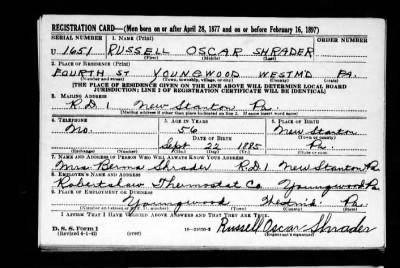 REGISTRATION CARD—(Men born on or after April 28, 1877 and on or before February 16, 1897)
SERIAL NUMBER 1. NAME (Print) ORDER NUMBER
U 1651 RUSSELL OSCAR SHRADER
(First) (Middle) (Last)
2. PLACE OF RESIDENCE (Print)
FOURTH ST YOUNGWOOD WESTMD PA.
(Number and street) (Town, township, village, or city) (County) (State)
[THE PLACE OF RESIDENCE GIVEN ON THE LINE ABOVE WILL DETERMINE LOCAL BOARD
JURISDICTION; LINE 2 OF REGISTRATION CERTIFICATE WILL BE IDENTICAL]
3. MAILING ADDRESS
R.D.1 New Stanton Pa.
[Mailing address if other than place indicated on line 2. If same insert word same]
4. TELEPHONE 5. AGE IN YEARS 6. PLACE OF BIRTH
No. 56 New Stanton
DATE OF BIRTH
Sept 22 1885 Pa.
(Exchange) (Number) (Mo.) (Day) (Yr.) (State or country)
7. NAME AND ADDRESS OF PERSON WHO WILL ALWAYS KNOW YOUR ADDRESS
Mrs. Shrader R.D.1 New Stanton Pa
8. EMPLOYER'S NAME AND ADDRESS
Robertshaw Thermostat Co Youngwood Pa
9. PLACE OF EMPLOYMENT OR BUSINESS
Youngwood Westmd. Pa.
(Number and street or R. F. D. number) (Town) (County) (State)
I AFFIRM THAT I HAVE VERIFIED ABOVE ANSWERS AND THAT THEY ARE TRUE.
D. S. S. Form 1
(Revised 4-1-42) (over) Russell Oscar Shrader
(Registrant's signature)